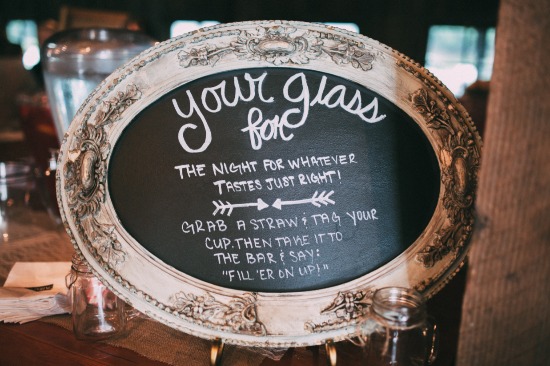 your glass
for
THE NIGHT FOR WHATEVER
TASTES JUST RIGHT!
GRAB A STRAW & TAG YOUR
CUP. THEN TAKE IT TO
THE BAR & SAY:
"FILL 'ER ON UP!"